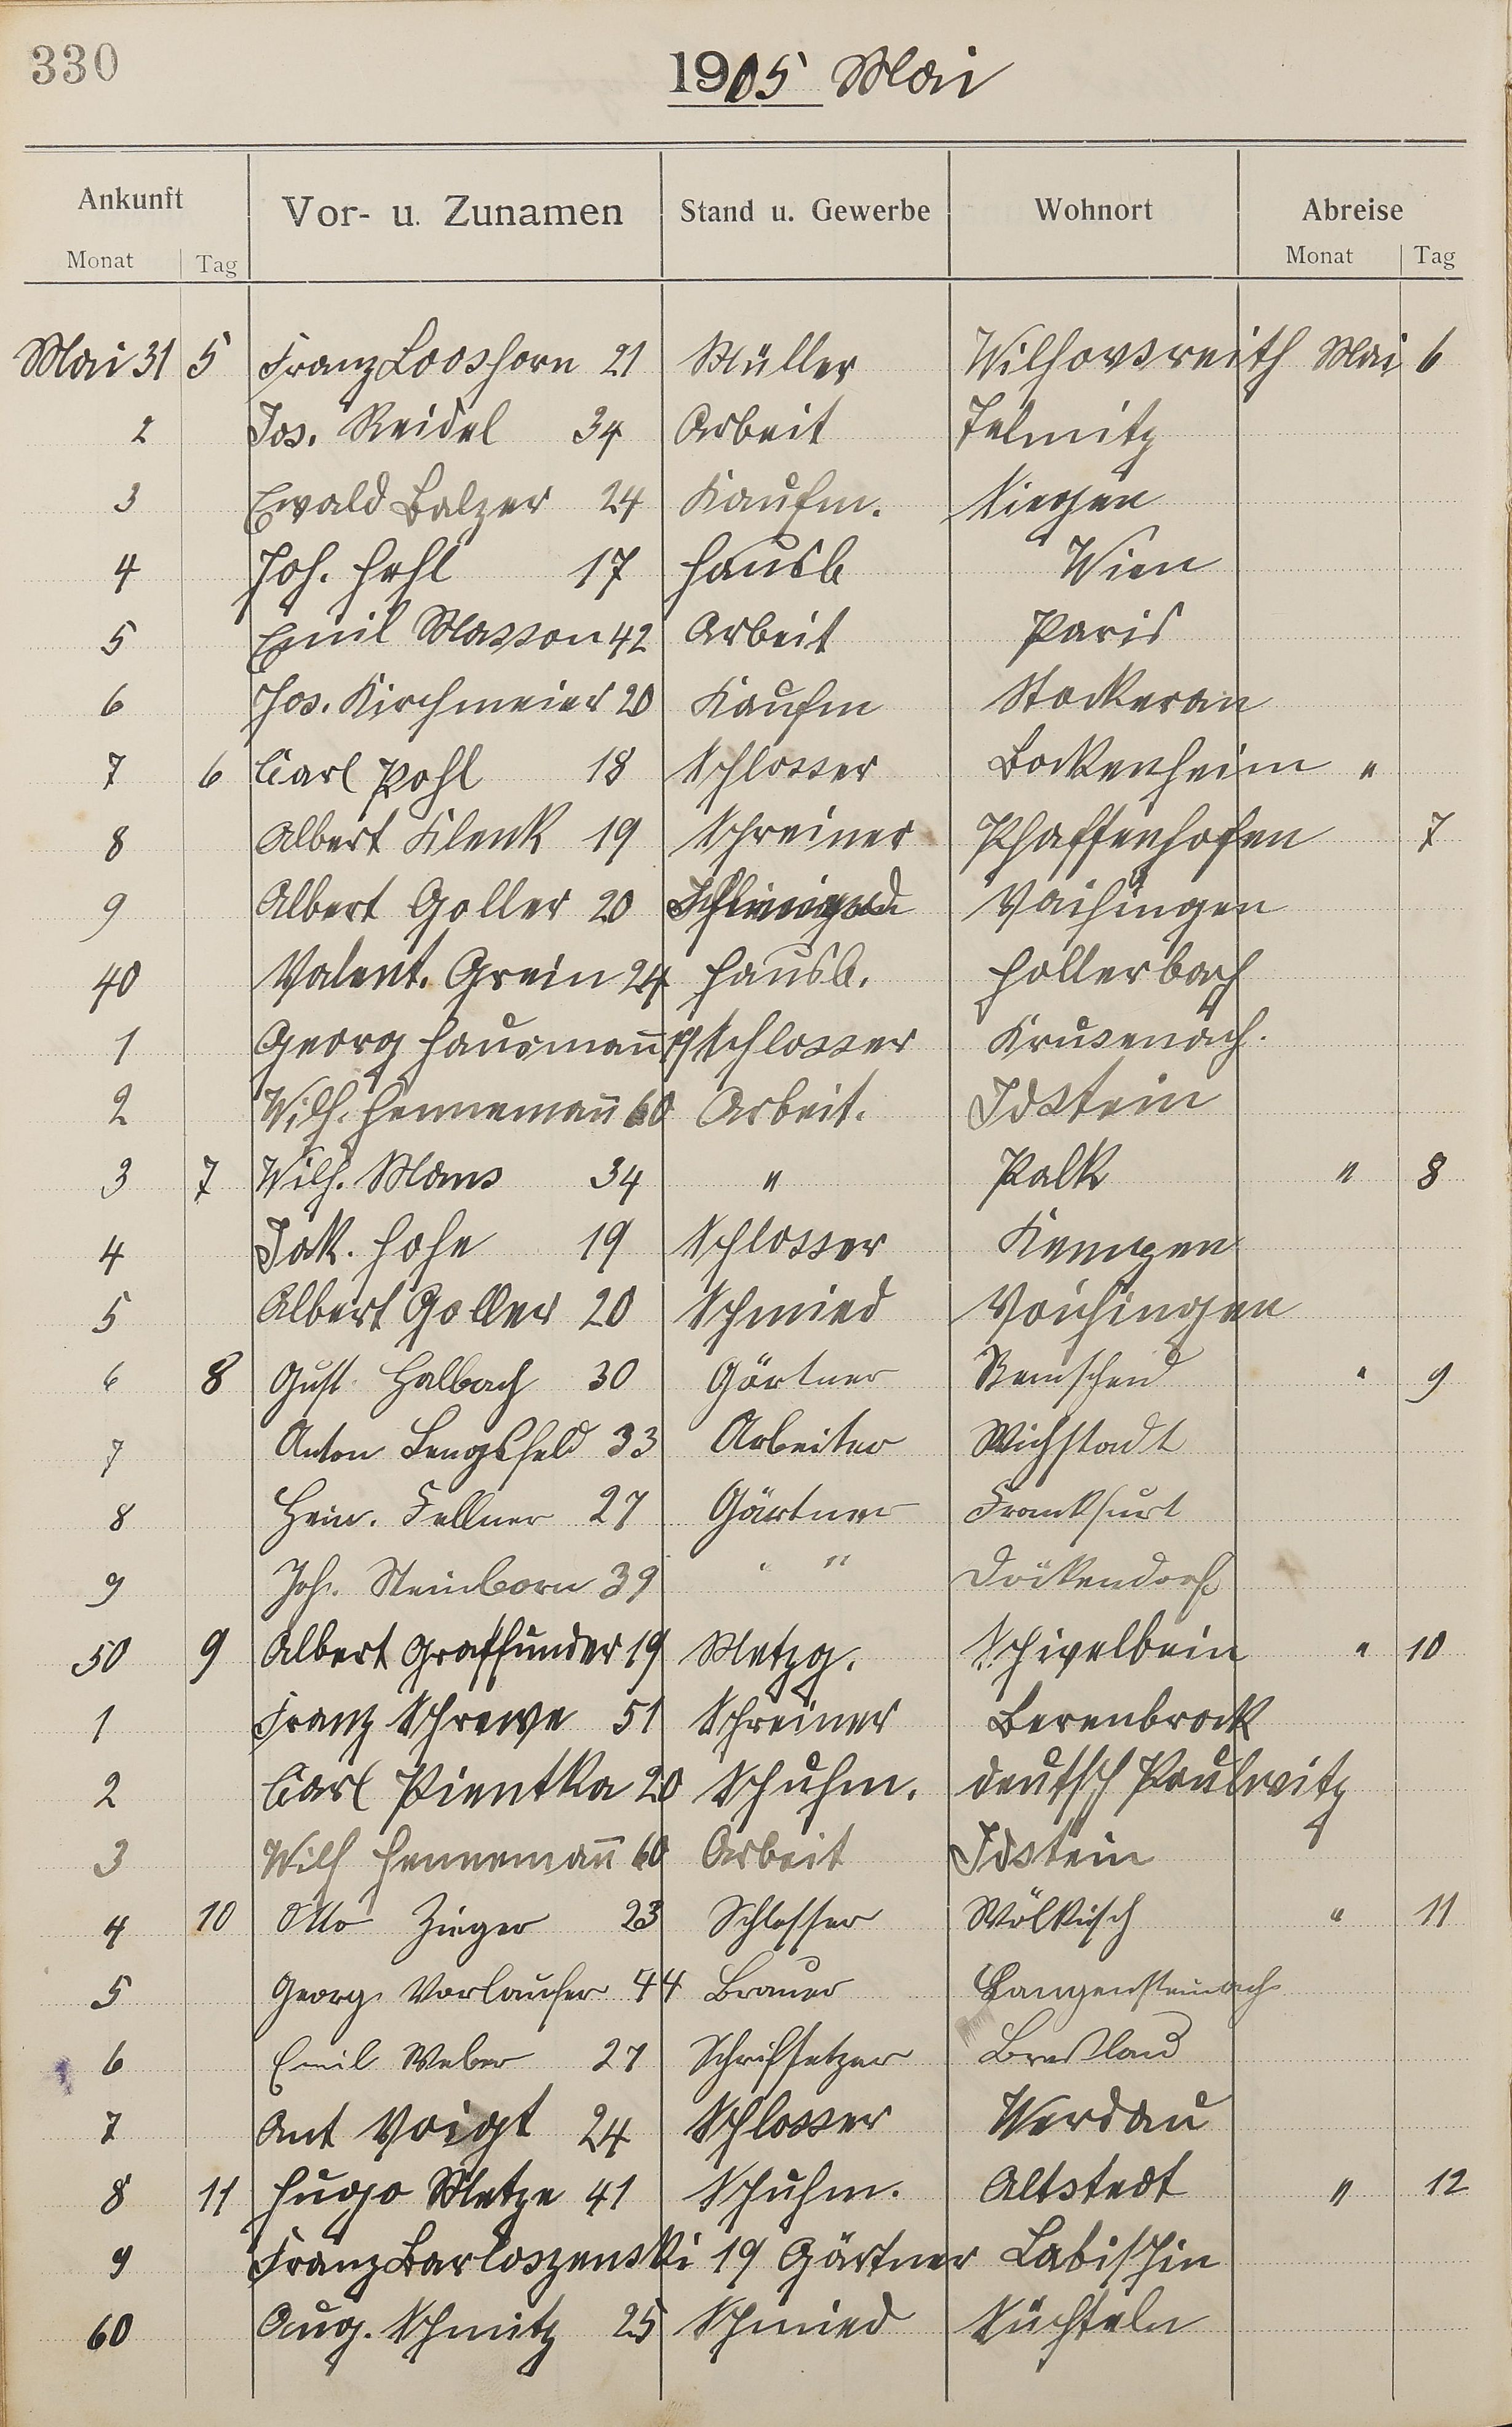 330
1905 Mai
Ankunft Vor- u. Zunamen Stand u. Gewerbe Wohnort Abreise
Monat Tag Monat Tag
Mai 31 5 Franz Looshorn 21 Müller Wilhovsreith Mai 6
2 Jos. Reidel 34 Arbeit Telmitz
3 Ewald Balzer 24 Kaufm. Siegen
4 Joh. Hehl 17 Hausb Wien
5 Emil Masson 42 Arbeit Paris
6 Jos. Kirchmeier 20 Kaufm Stockerau
7 6 Carl Pohl 18 Schlosser Bockenheim "
8 Albert Klenk 19 Schreiner Phaffenhofen 7
9 Albert Goller 20 Vaihingen
40 Valent. Grein 24 Hausb. Hollerbach
1 Georg Hausmann̅ 19 Schlosser Krusenach.
2 Wilh. Henneman̅ 60 Arbeit. Idstein
3 7 Wilh. Mans 34 " Palk " 8
4 Jak. Hohe 19 Schlosser Kempen
5 Albert Goller 20 Schmied Vaihingen
6 8 Gust. Halbach 30 Gärtner Remscheid " 9
7 Anton Lengsfeld 33 Arbeiter Wichstadt
8 Hein. Fellner 27 Gärtner Frankfurt
9 Joh. Steinborn 39 " Döckendorf
50 9 Albert Graffunder 19 Metzg. Schivelbein " 10
1 Franz Schrewe 51 Schreiner Berenbrock
2 Carl Pientka 20 Schuhm. deutsch Paulwitz
3 Wilh Henneman̅ 60 Arbeit Idstein
4 10 Otto Zieger 23 Schlosser Wölkisch " 11
5 Georg Vorlaufer 44 Brauer Langensteinach
6 Emil Weber 27 Schriftsetzer Breslau
7 Ant Voigt 24 Schlosser Werdau
8 11 Hugo Metze 41 Schuhm. Altstedt " 12
9 Franz Barloszenski 19 Gärtner Labischin
60 Aug. Schmitz 25 Schmied Süchteln